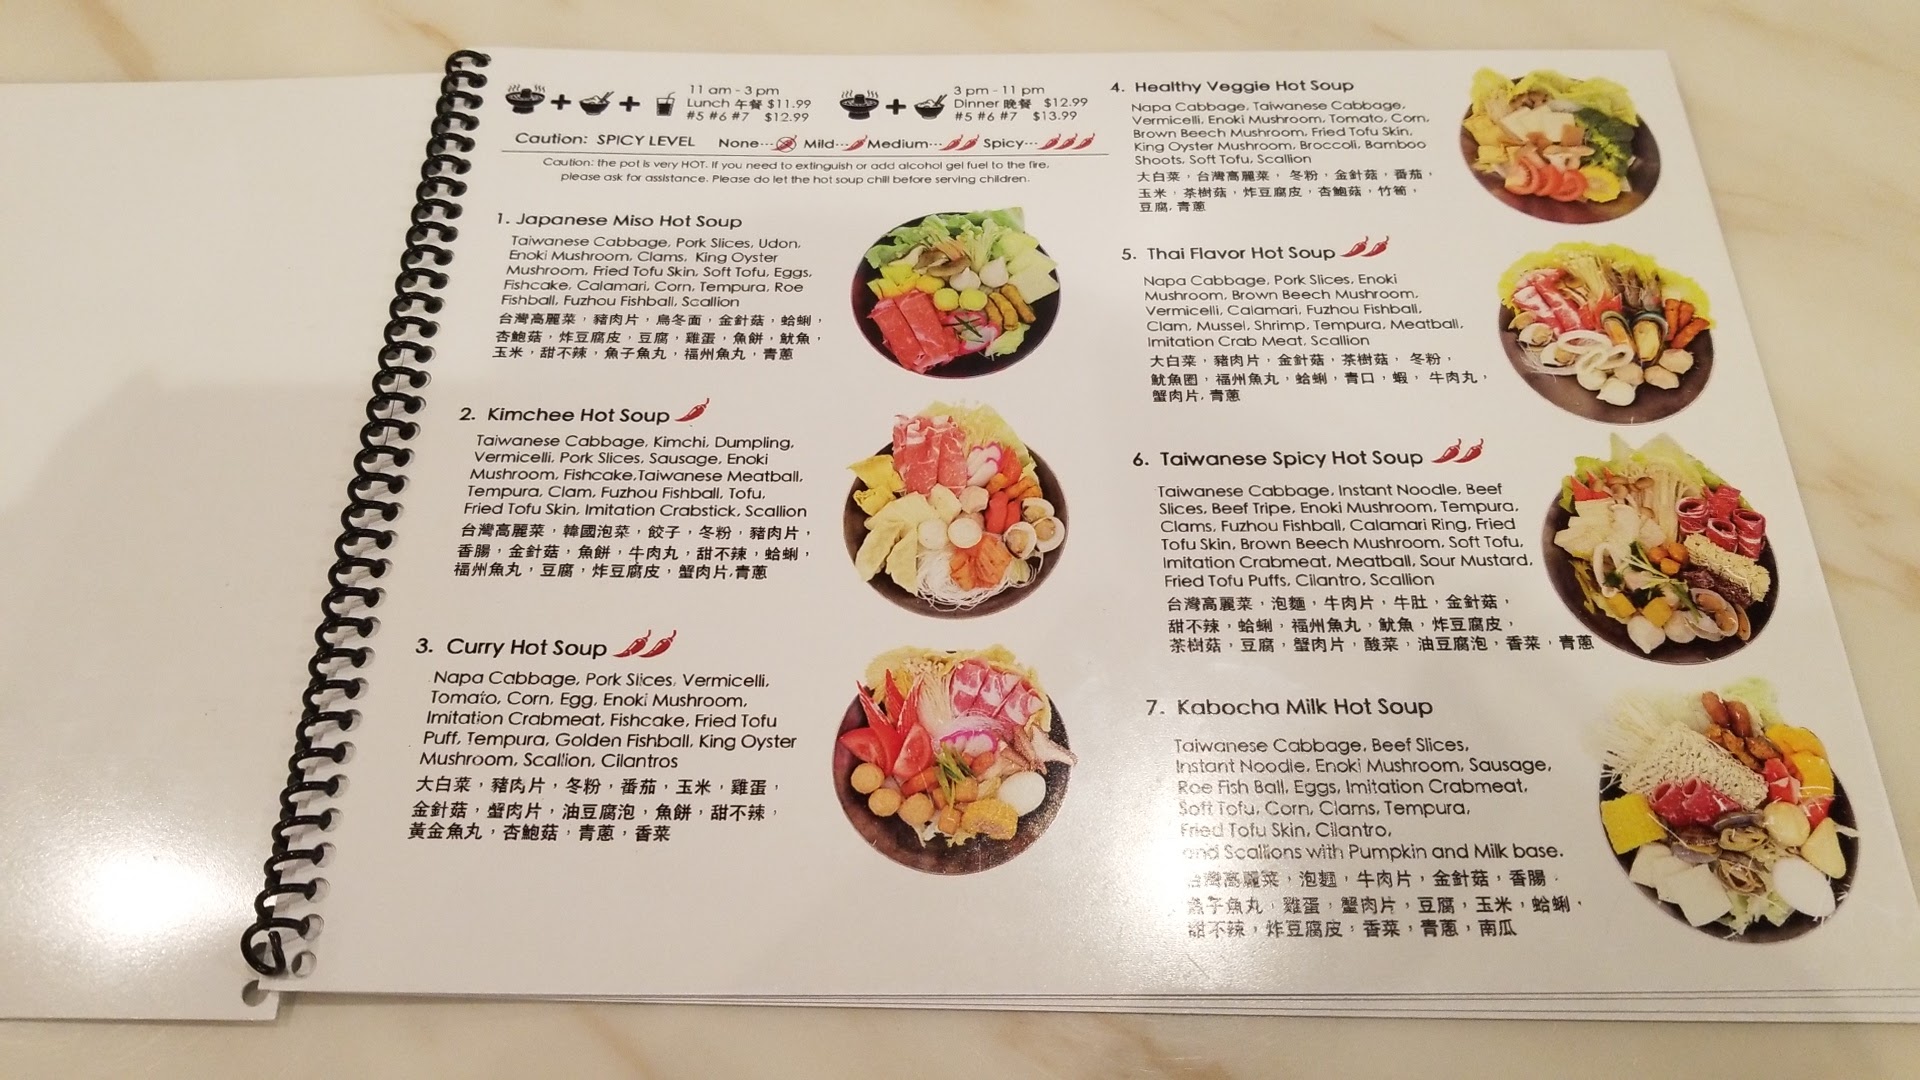 11 am - 3 pm
Lunch 午餐 $11.99
#5 #6 #7 $12.99
3 pm - 11 pm
Dinner 晚餐 $12.99
#5 #6 #7 $13.99
Caution: SPICY LEVEL None··· Mild··· Medium··· Spicy···
Caution: the pot is very HOT. If you need to extinguish or add alcohol gel fuel to the fire,
please ask for assistance. Please do let the hot soup chill before serving children.
1. Japanese Miso Hot Soup
Taiwanese Cabbage, Pork Slices, Udon,
Enoki Mushroom, Clams, King Oyster
Mushroom, Fried Tofu Skin, Soft Tofu, Eggs,
Fishcake, Calamari, Corn, Tempura, Roe
Fishball, Fuzhou Fishball, Scallion
台灣高麗菜，豬肉片，烏冬面，金針菇，蛤蜊，
杏鮑菇，炸豆腐皮，豆腐，雞蛋，魚餅，魷魚，
玉米，甜不辣，魚子魚丸，福州魚丸，青蔥
2. Kimchee Hot Soup
Taiwanese Cabbage, Kimchi, Dumpling,
Vermicelli, Pork Slices, Sausage, Enoki
Mushroom, Fishcake,Taiwanese Meatball,
Tempura, Clam, Fuzhou Fishball, Tofu,
Fried Tofu Skin, Imitation Crabstick, Scallion
台灣高麗菜，韓國泡菜，餃子，冬粉，豬肉片，
香腸，金針菇，魚餅，牛肉丸，甜不辣，蛤蜊，
福州魚丸，豆腐，炸豆腐皮，蟹肉片,青蔥
3. Curry Hot Soup
Napa Cabbage, Pork Slices, Vermicelli,
Tomato, Corn, Egg, Enoki Mushroom,
Imitation Crabmeat, Fishcake, Fried Tofu
Puff, Tempura, Golden Fishball, King Oyster
Mushroom, Scallion, Cilantros
大白菜，豬肉片，冬粉，番茄，玉米，雞蛋，
金針菇，蟹肉片，油豆腐泡，魚餅，甜不辣，
黃金魚丸，杏鮑菇，青蔥，香菜
4. Healthy Veggie Hot Soup
Napa Cabbage, Taiwanese Cabbage,
Vermicelli, Enoki Mushroom, Tomato, Corn,
Brown Beech Mushroom, Fried Tofu Skin,
King Oyster Mushroom, Broccoli, Bamboo
Shoots, Soft Tofu, Scallion
大白菜，台灣高麗菜，冬粉，金針菇，番茄，
玉米，茶樹菇，炸豆腐皮，杏鮑菇，竹筍，
豆腐,青蔥
5. Thai Flavor Hot Soup
Napa Cabbage, Pork Slices, Enoki
Mushroom, Brown Beech Mushroom,
Vermicelli, Calamari, Fuzhou Fishball,
Clam, Mussel, Shrimp, Tempura, Meatball,
Imitation Crab Meat, Scallion
大白菜，豬肉片，金針菇，茶樹菇，冬粉，
魷魚圈，福州魚丸，蛤蜊，青口，蝦，牛肉丸，
蟹肉片,青蔥
6. Taiwanese Spicy Hot Soup
Taiwanese Cabbage, Instant Noodle, Beef
Slices, Beef Tripe, Enoki Mushroom, Tempura,
Clams, Fuzhou Fishball, Calamari Ring, Fried
Tofu Skin, Brown Beech Mushroom, Soft Tofu,
Imitation Crabmeat, Meatball, Sour Mustard,
Fried Tofu Puffs, Cilantro, Scallion
台灣高麗菜，泡麵，牛肉片，牛肚，金針菇，
甜不辣，蛤蜊，福州魚丸，魷魚，炸豆腐皮，
茶樹菇，豆腐，蟹肉片，酸菜，油豆腐泡，香菜，青蔥
7. Kabocha Milk Hot Soup
Taiwanese Cabbage, Beef Slices,
Instant Noodle, Enoki Mushroom, Sausage,
Roe Fish Ball, Eggs, Imitation Crabmeat,
Soft Tofu, Corn, Clams, Tempura,
Fried Tofu Skin, Cilantro,
and Scallions with Pumpkin and Milk base.
台灣高麗菜，泡麵，牛肉片，金針菇，香腸，
魚子魚丸，雞蛋，蟹肉片，豆腐，玉米，蛤蜊，
甜不辣，炸豆腐皮，香菜，青蔥，南瓜